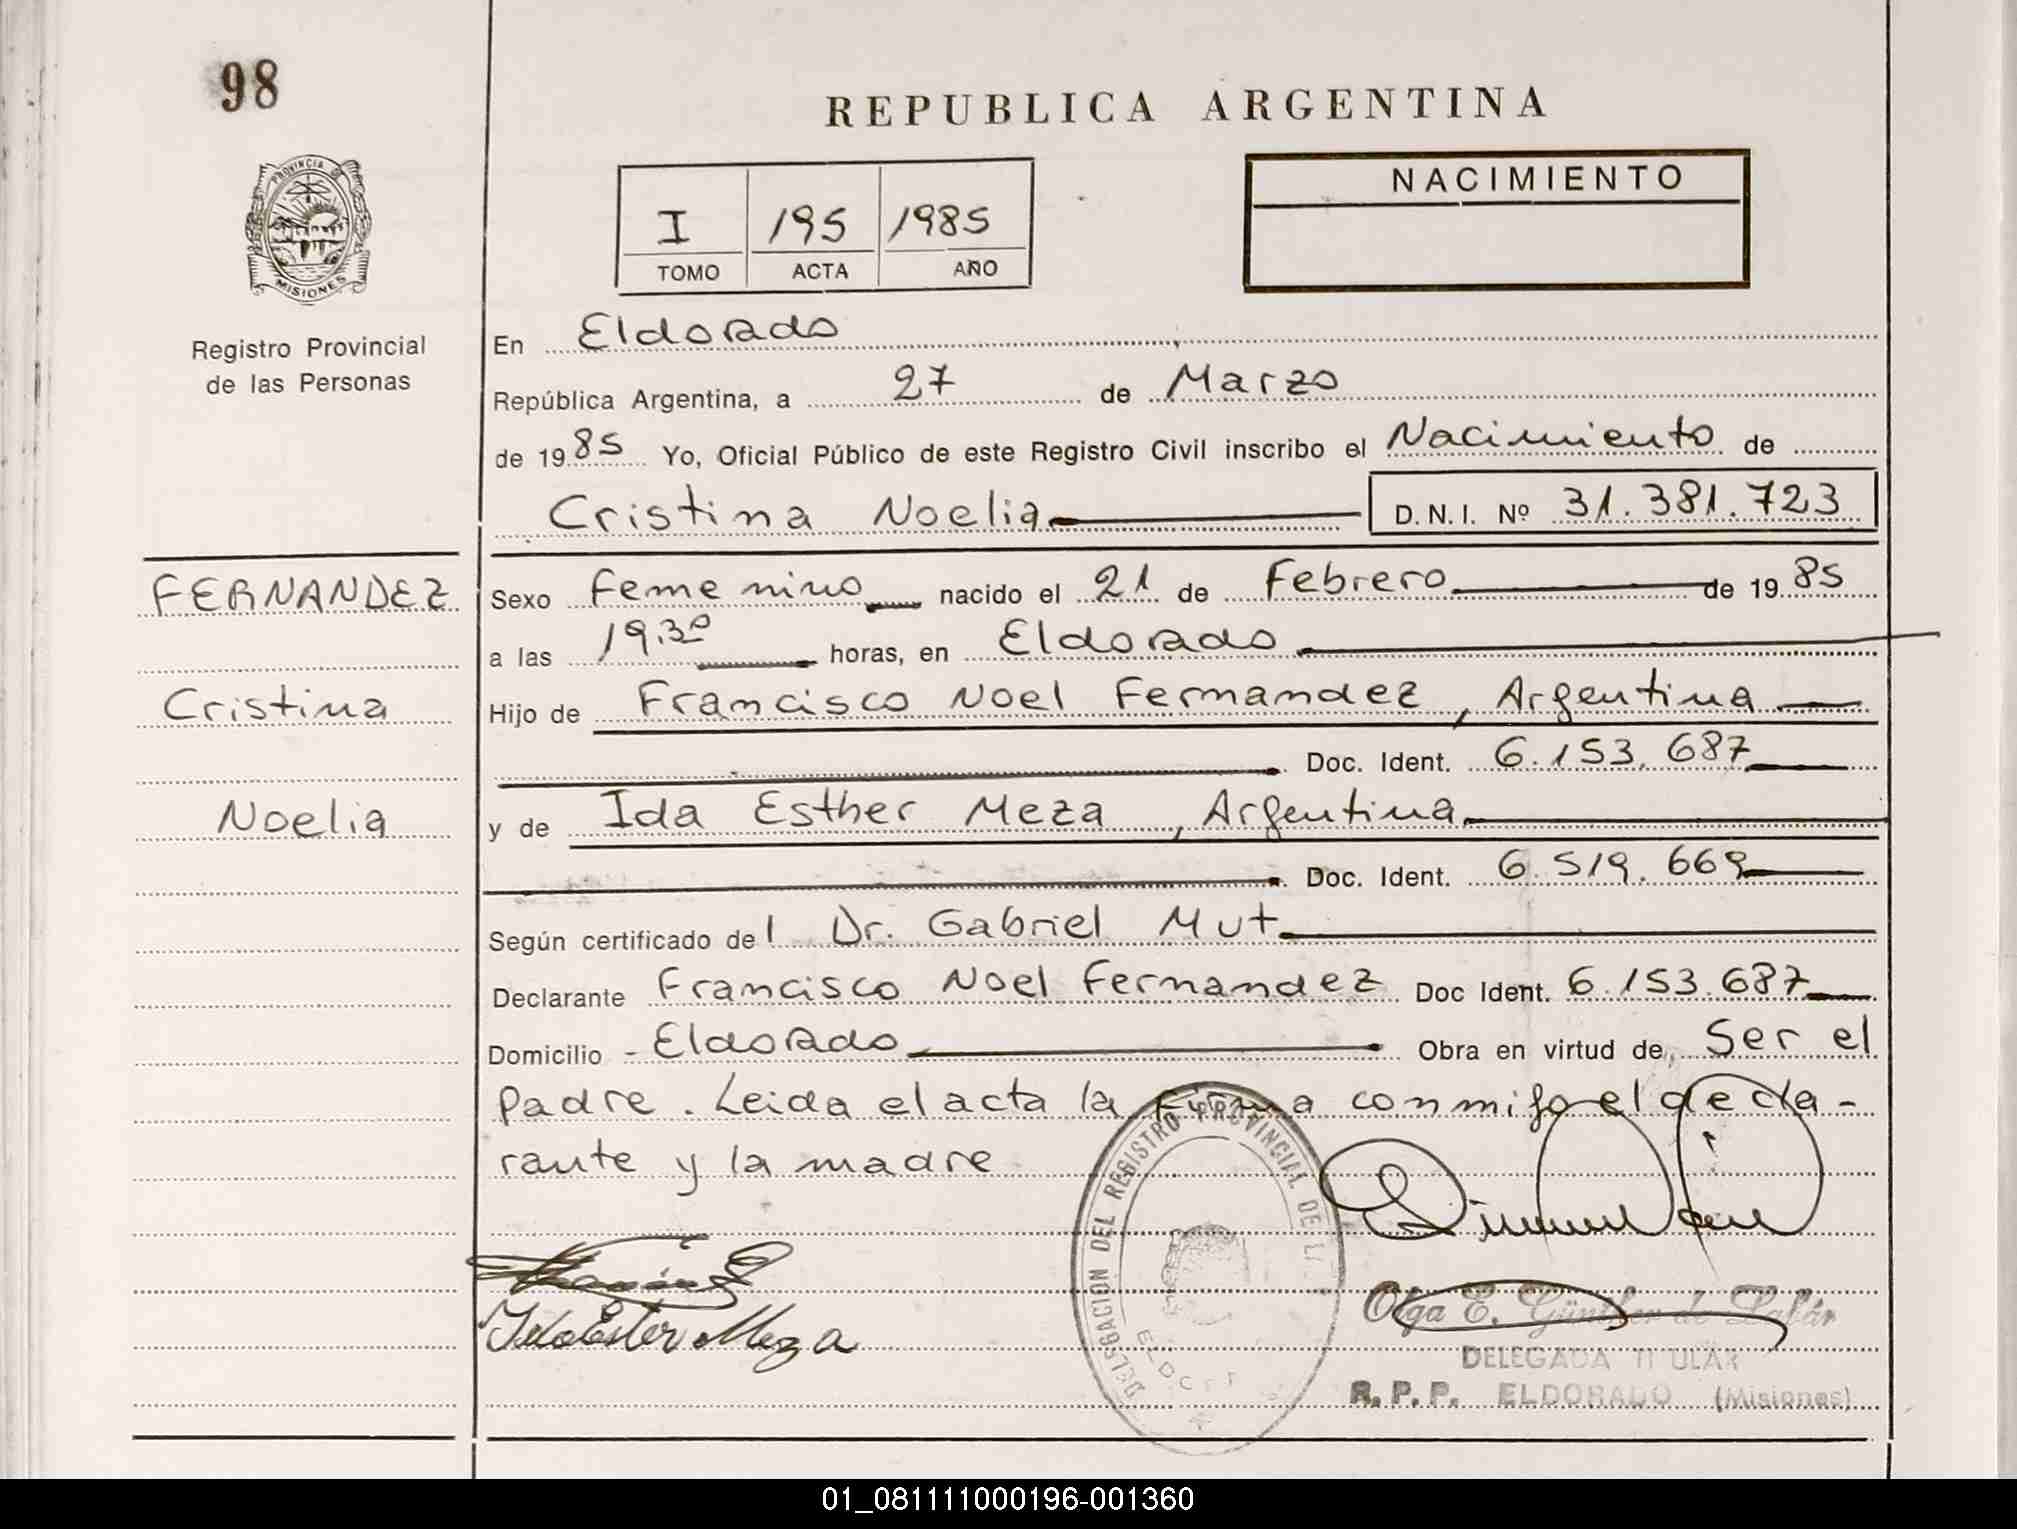 98
REPUBLICA ARGENTINA
PROVINCIA DE
MISIONES
I 195 1985
TOMO ACTA AÑO
NACIMIENTO
Registro Provincial
de las Personas
En Eldorado
República Argentina, a 27 de Marzo
de 1985 Yo, Oficial Público de este Registro Civil inscribo el Nacimiento de
Cristina Noelia D.N.I. Nº 31.381.723
FERNANDEZ
Cristina
Noelia
Sexo Femenino nacido el 21 de Febrero de 1985
a las 19.30 horas, en Eldorado
Hijo de Francisco Noel Fernandez, Argentina
Doc. Ident. 6.153.687
y de Ida Esther Meza, Argentina
Doc. Ident. 6.519.669
Según certificado del Dr. Gabriel Mut
Declarante Francisco Noel Fernandez Doc Ident. 6.153.687
Domicilio - Eldorado Obra en virtud de Ser el
padre. Leida el acta la firma conmigo el decla-
rante y la madre
DELEGACION DEL REGISTRO PROVINCIAL DE
Ida Ester Meza
Olga E. Günther de
DELEGADA TITULAR
R.P.P. ELDORADO (Misiones)
01_081111000196-001360